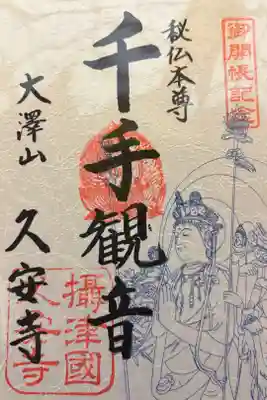 御開帳記念
秘仏本尊
千手観音
大澤山
久安寺
攝津國
久安寺